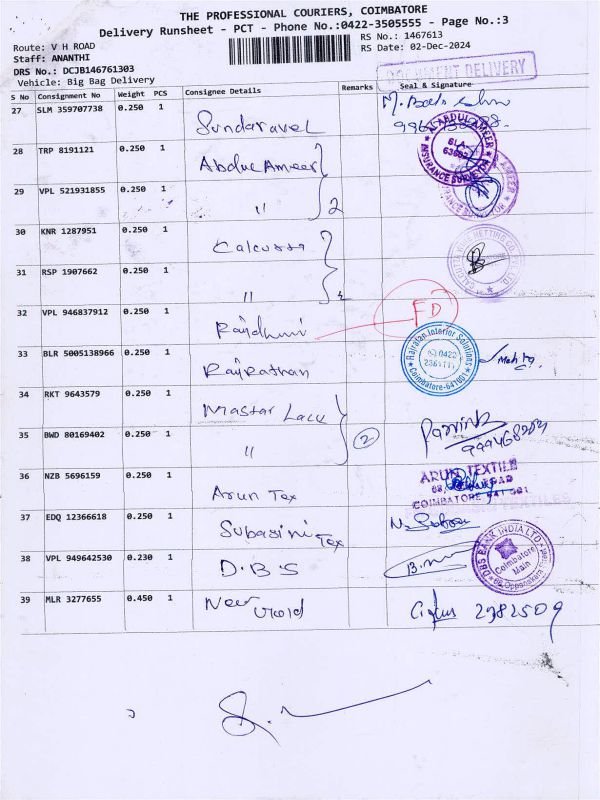 THE PROFESSIONAL COURIERS, COIMBATORE
Delivery Runsheet - PCT - Phone No.:0422-3505555 - Page No.:3
Route: V H ROAD
RS No.: 1467613
Staff: ANANTHI
RS Date: 02-Dec-2024
DRS No.: DCJB146761303
Vehicle: Big Bag Delivery
DOCUMENT DELIVERY
S No Consignment No Weight PCS Consignee Details Remarks Seal & Signature
27 SLM 359707738 0.250 1
Sundaravel
28 TRP 8191121 0.250 1
Abdul Ameer
N ABDUL AMEER
SLA
INSURANCE SURVEYOR
29 VPL 521931855 0.250 1
" 2
30 KNR 1287951 0.250 1
Calcutta
31 RSP 1907662 0.250 1
"
32 VPL 946837912 0.250 1
Rajdhni
FD
33 BLR 5005138966 0.250 1
Rajrathan
Rajratan Interior Solutions
0422
Coimbatore-641001
34 RKT 9643579 0.250 1
Mastar Lacu
35 BWD 80169402 0.250 1
" 2
36 NZB 5696159 0.250 1
Arun Tex
ARUN TEXTILE
COIMBATORE 641 001
37 EDQ 12366618 0.250 1
Subasini Tex
38 VPL 949642530 0.230 1
D.B.S
DBS BANK INDIA LTD
Coimbatore
Main
39 MLR 3277655 0.450 1